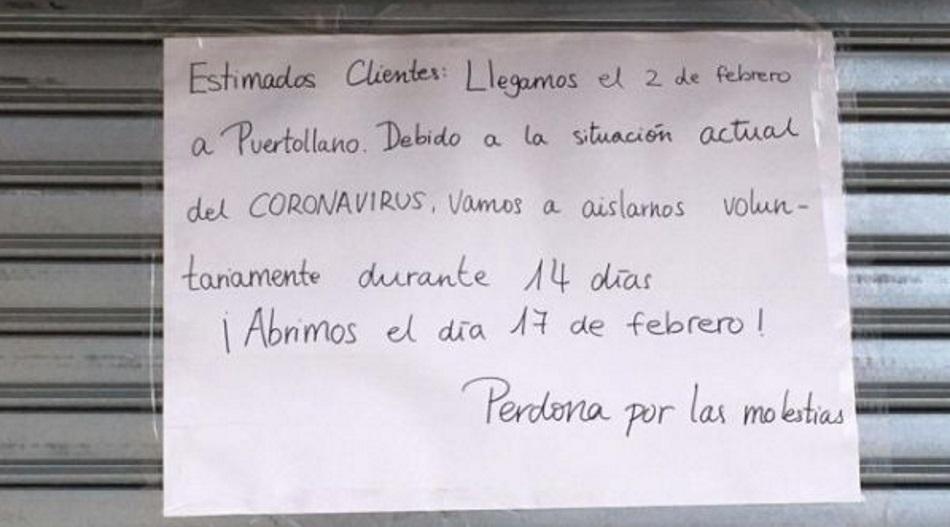 Estimados Clientes: Llegamos el 2 de febrero
a Puertollano. Debido a la situación actual
del CORONAVIRUS, Vamos a aislarnos volun-
tariamente durante 14 días
¡Abrimos el día 17 de febrero!
Perdona por las molestias